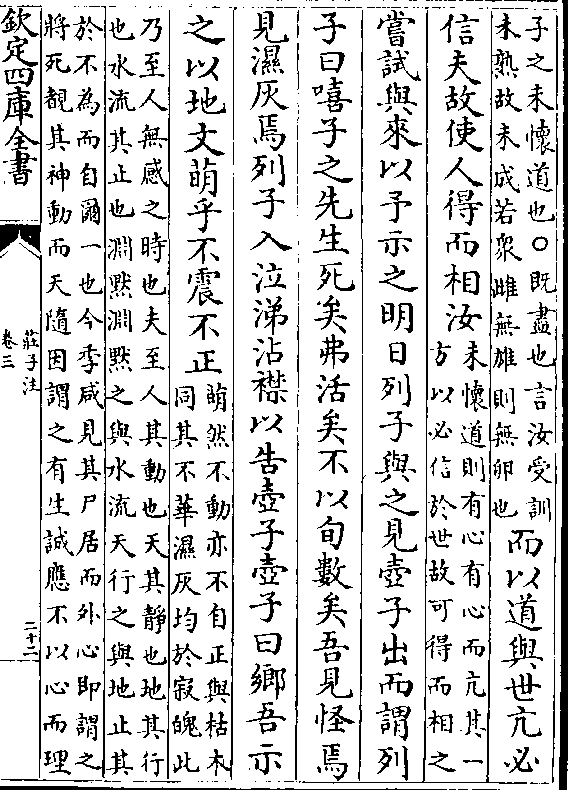 子之未懷道也○既盡也言汝受訓
未熟故未成若衆雌無雄則無卵也
而以道與世亢必
信夫故使人得而相汝
未懷道則有心有心而亢其一
方以必信於世故可得而相之
嘗試與來以予示之明日列子與之見壺子出而謂列
子曰嘻子之先生死矣弗活矣不以旬數矣吾見怪焉
見濕灰焉列子入泣涕沾襟以告壺子壺子曰鄉吾示
之以地文萌乎不震不正
萌然不動亦不自正與枯木
同其不華濕灰均於寂魄此
乃至人無感之時也夫至人其動也天其靜也地其行
也水流其止也淵黙淵黙之與水流天行之與地止其
於不為而自爾一也今季咸見其尸居而外心即謂之
將死覩其神動而天隨因謂之有生誠應不以心而理
欽定四庫全書
莊子注
卷三
二十二